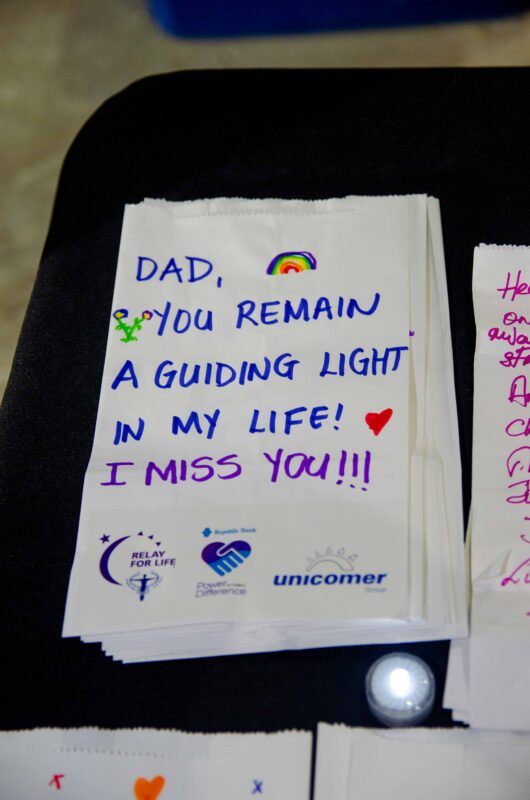 DAD,
YOU REMAIN
A GUIDING LIGHT
IN MY LIFE!
I MISS YOU!!!
RELAY
FOR LIFE
Republic Bank
Power
Difference
unicomer
Group